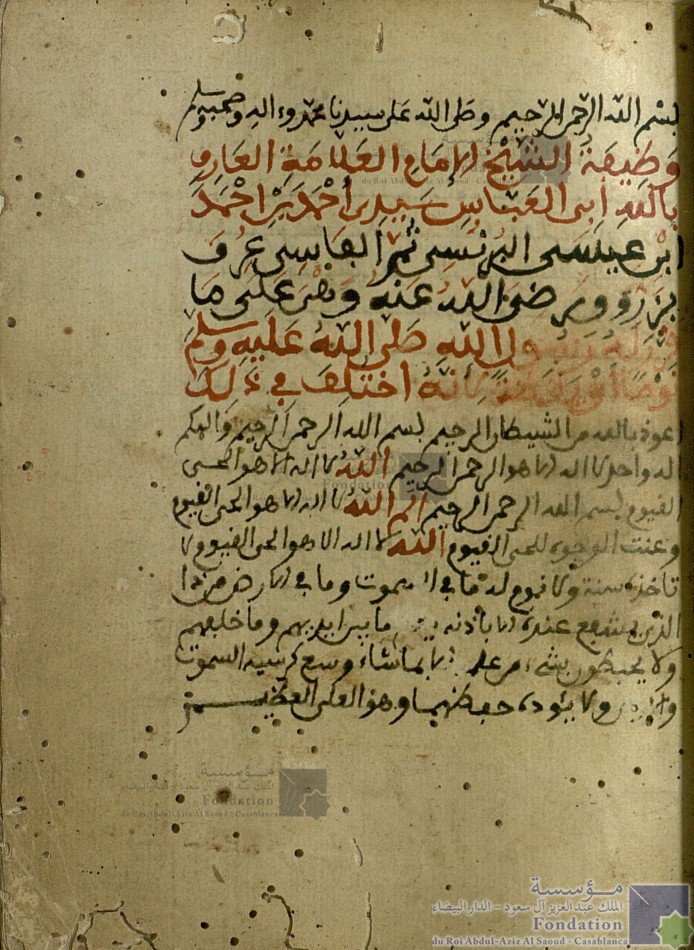 بسم الله الرحمن الرحيم وصلى الله على سيدنا محمد وءاله وصحبه وسلم
وظيفة الشيخ الإمام العلامة العارف
بالله أبى العباس سيدى أحمد بن احمد
ابن عيسى البرنسى ثم الفاسى عرف
بزروق رضى الله عنه وهى على ما
رسول الله صلى الله عليه وسلم
اختلف في ذلك
اعوذ بالله من الشيطان الرجيم بسم الله الرحمن الرحيم والهكم
اله واحد لا اله الا هو الرحمن الرحيم الم الله لا اله الا هو الحى
القيوم بسم الله الرحمن الرحيم الم الله لا اله الا هو الحى القيوم
وعنت الوجوه للحى القيوم الله لا اله الا هو الحى القيوم لا
تاخذه سنة ولا نوم له ما في السموت وما في الارض من ذا
الذى يشفع عنده الا باذنه يعلم ما بين ايديهم وما خلفهم
ولا يحيطون بشىء من علمه الا بما شاء وسع كرسيه السموت
والارض ولا يئوده حفظهما وهو العلى العظيم
مؤسسة
الملك عبد العزيز آل سعود - الدار البيضاء
Fondation
du Roi Abdul-Aziz Al Saoud - Casablanca
مؤسسة
الملك عبد العزيز آل سعود - الدار البيضاء
Fondation
du Roi Abdul-Aziz Al Saoud - Casablanca